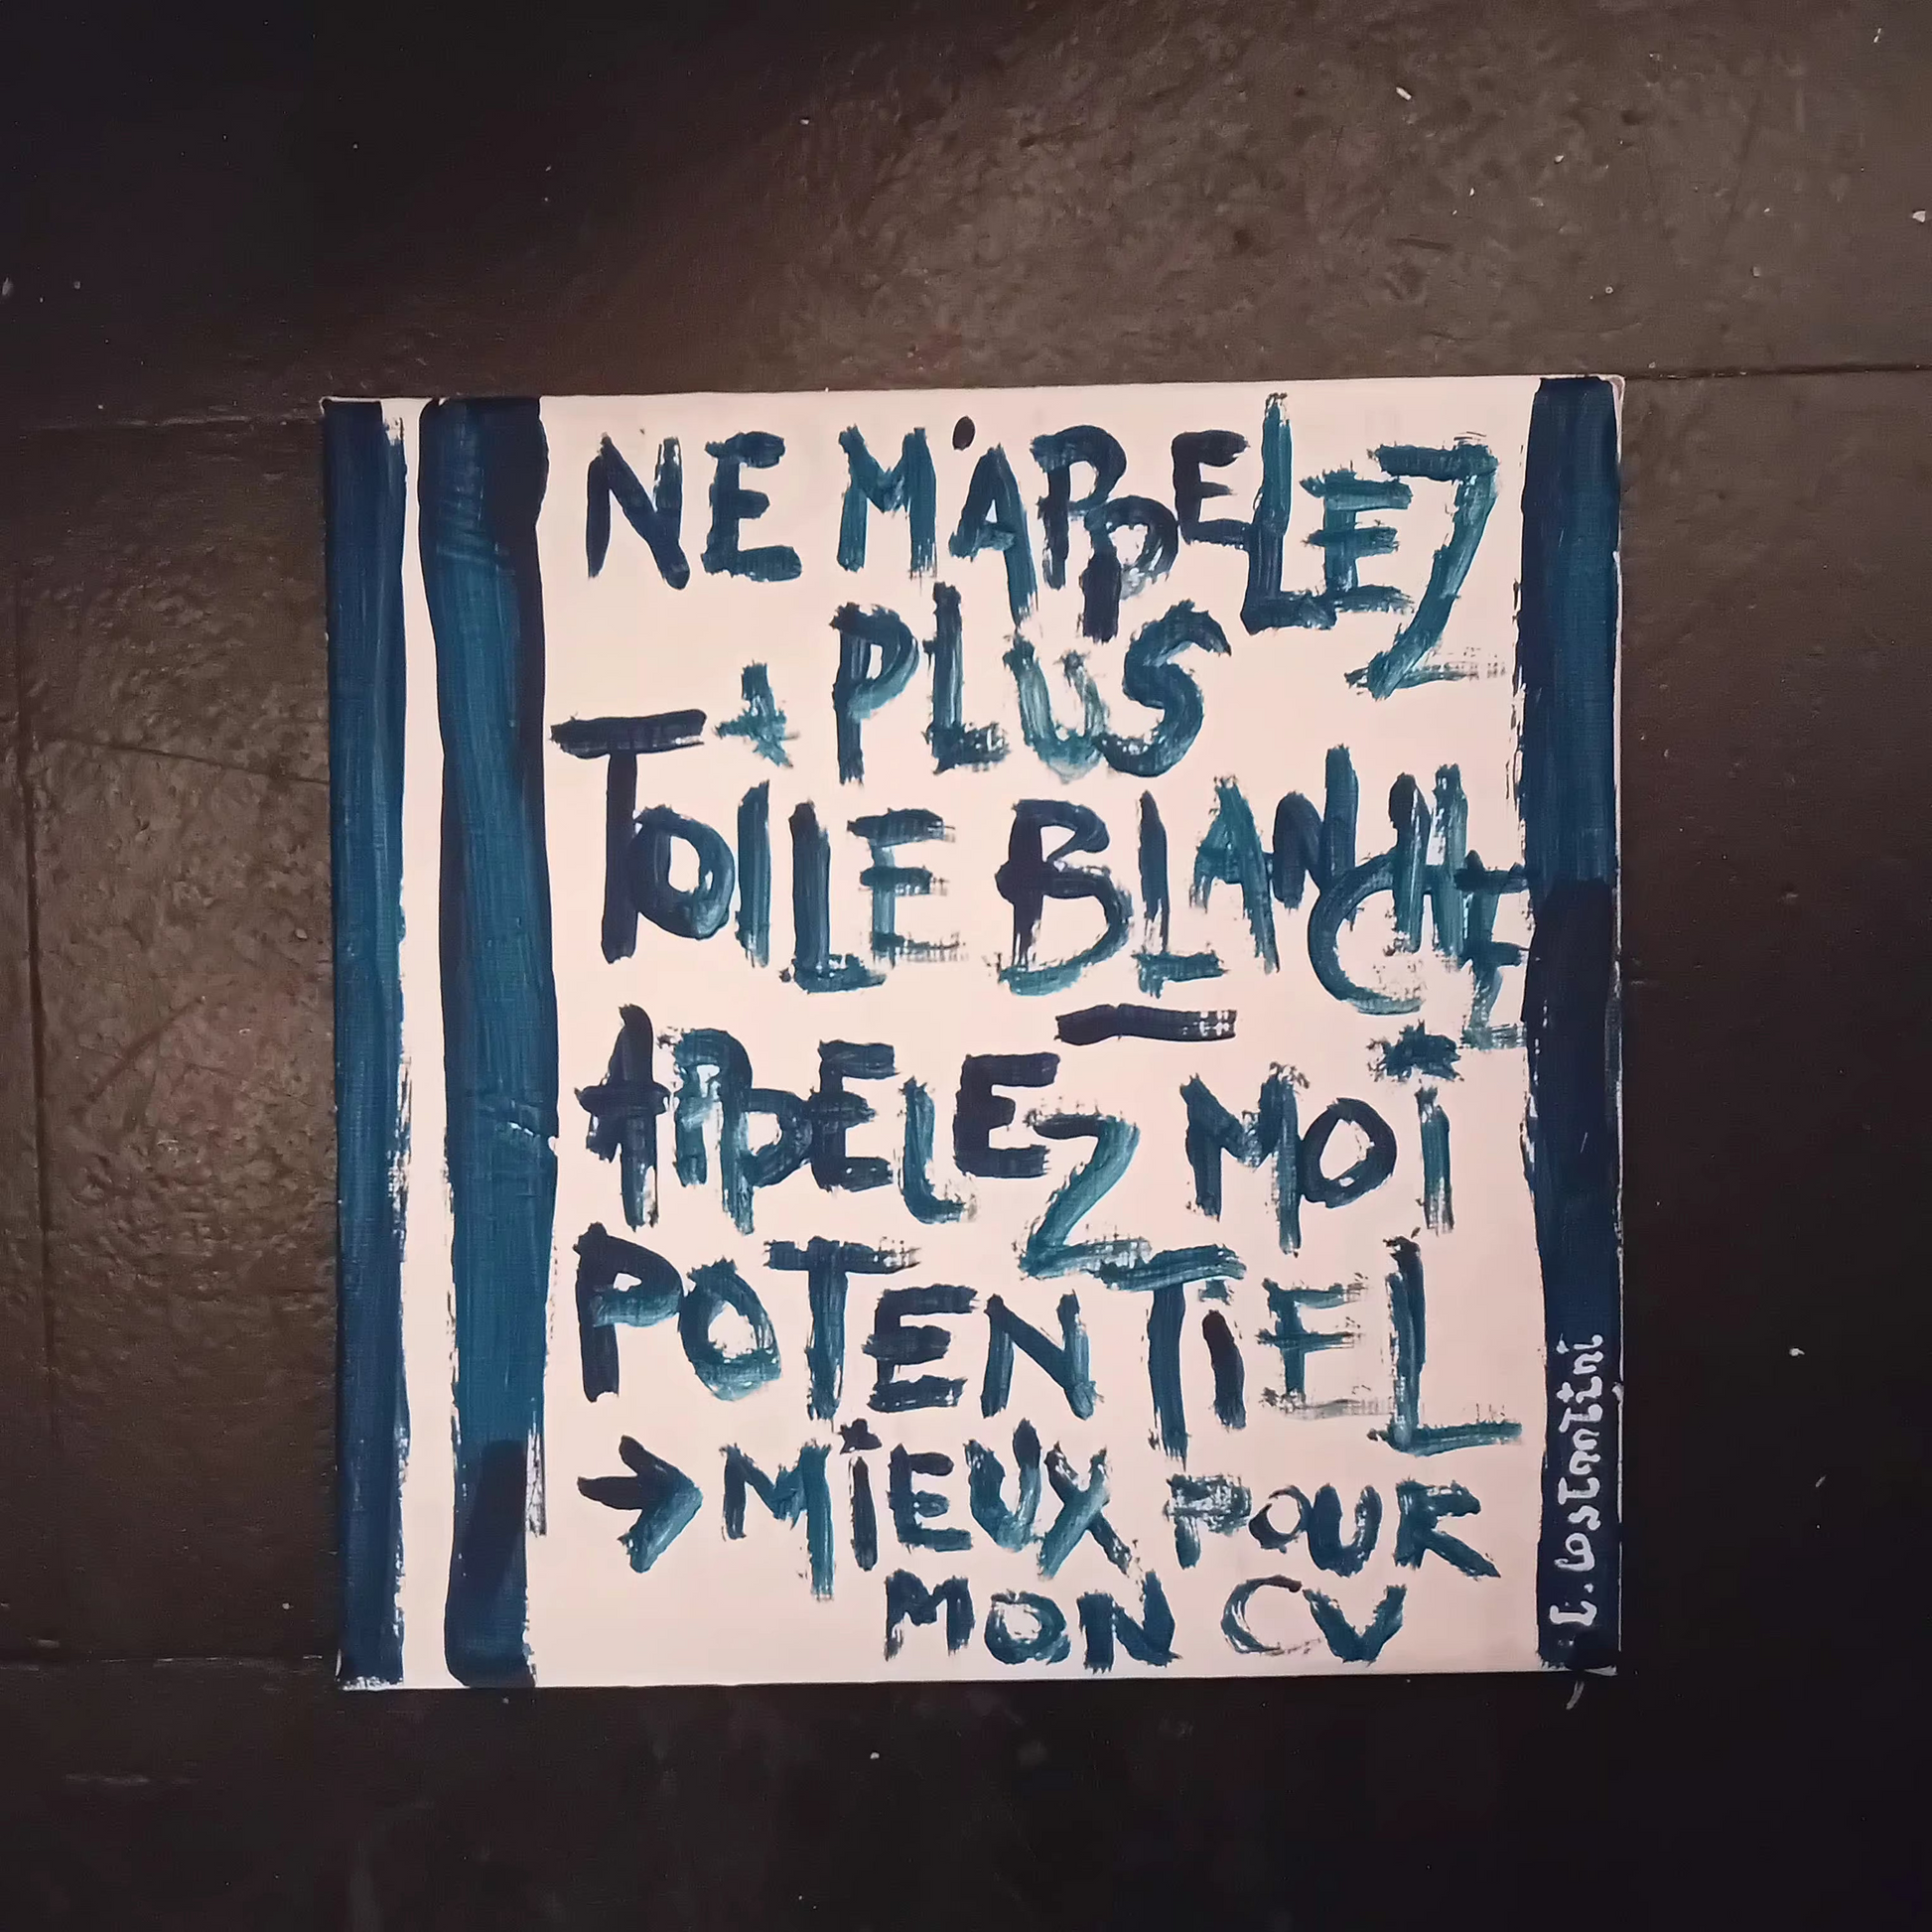 NE M'APPELEZ
+ PLUS
TOILE BLANCHE
—
APPELEZ MOi
POTENTiEL
→ MiEUX POUR
MON CV
L. Costantini